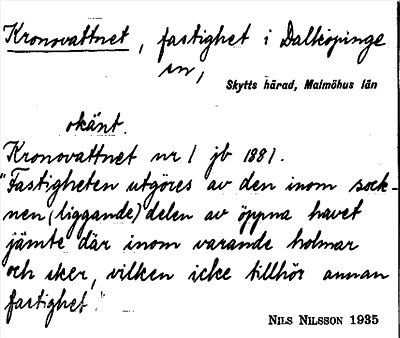 Kronovattnet, fastighet i Dalköpinge
sn,
Skytts härad, Malmöhus län
okänt.
Kronovattnet nr 1 jb 1881.
"Fastigheten utgöres av den inom sock-
nen (liggande) delen av öppna havet
jämte där inom varande holmar
och sker, vilken icke tillhör annan
fastighet."
NILS NILSSON 1935